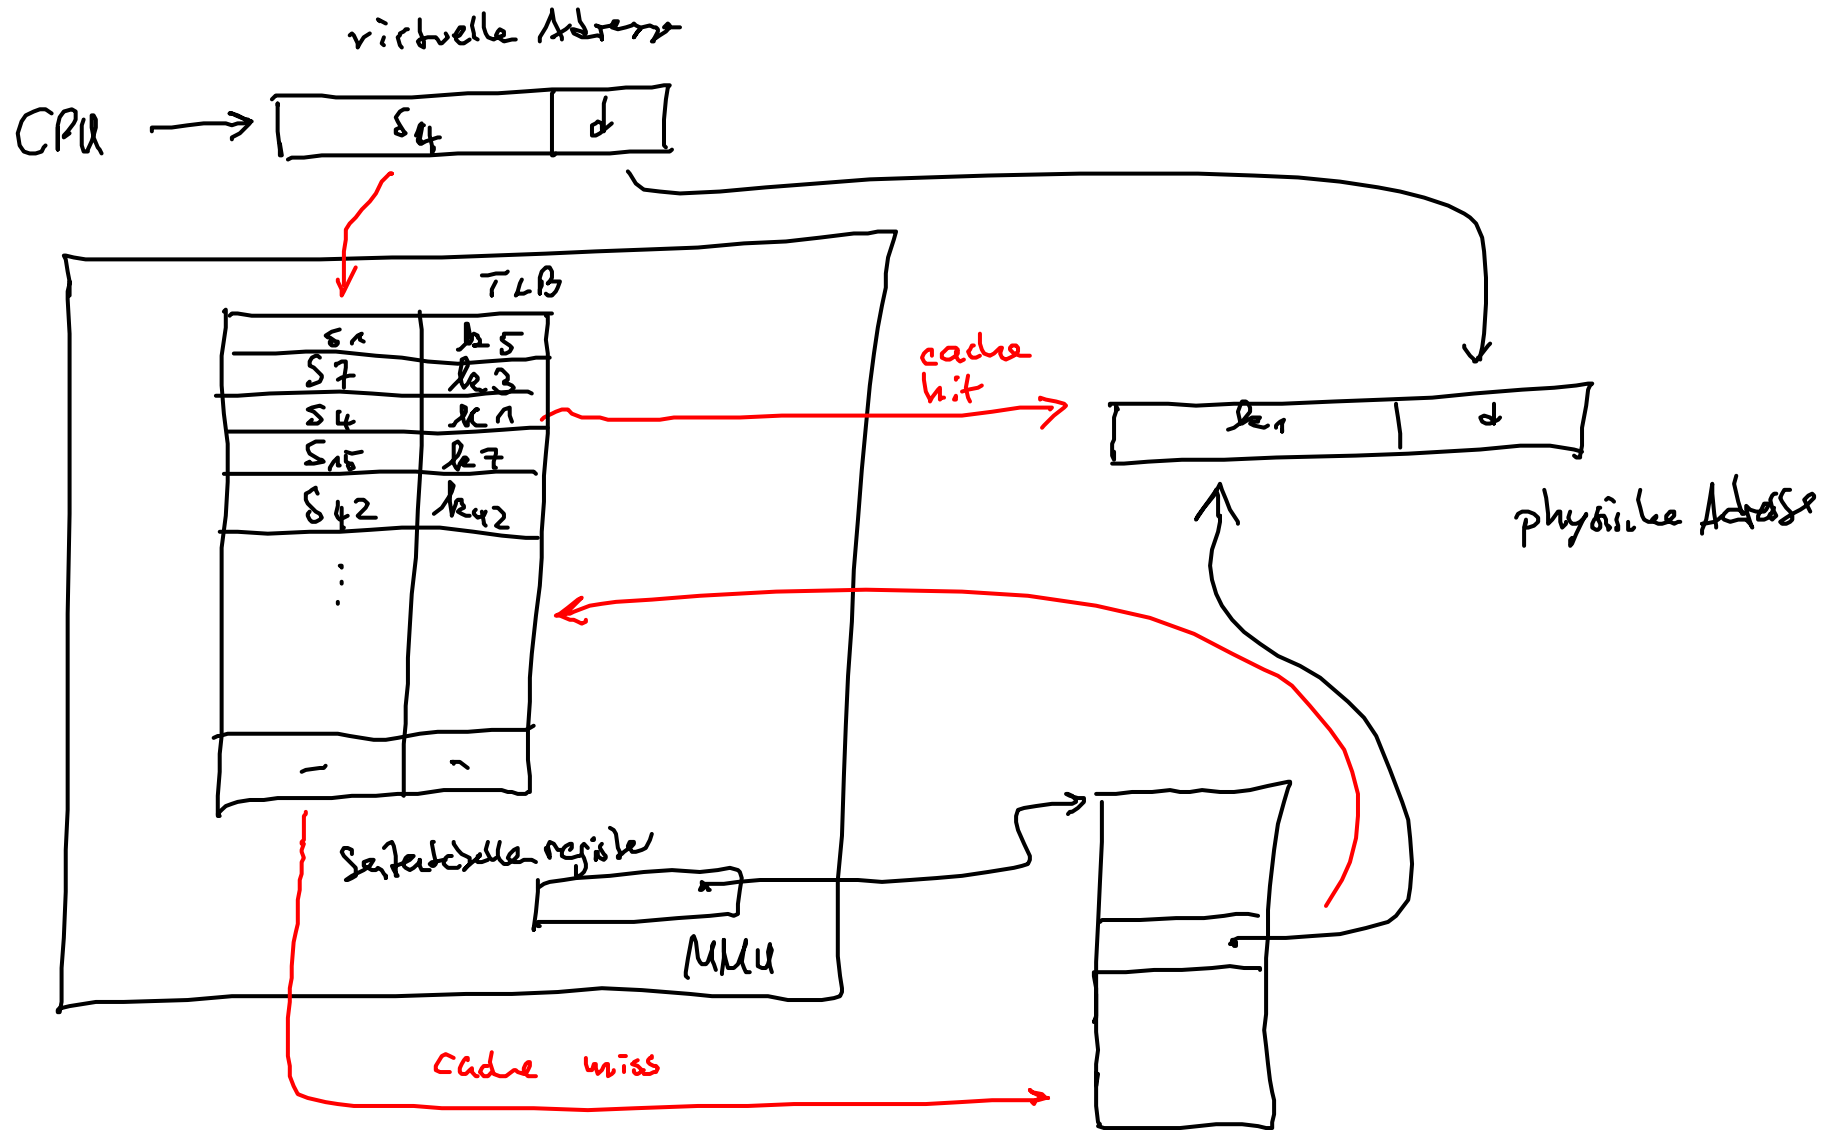 virtuelle Adresse
CPU
s4 d
TLB
s1 k5
s7 k3
s4 k1
s15 k7
s42 k42
cache
hit
k1 d
physische Adresse
Seitentabellenregister
MMU
cache miss